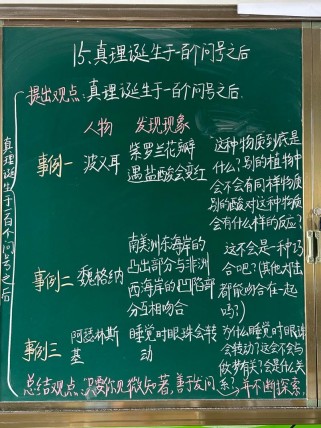 15、真理诞生于一百个问号之后
提出观点:真理诞生于一百个问号之后.
人物 发现现象
事例一 波义耳 紫罗兰花瓣
遇盐酸会变红
这种物质到底是
什么?别的植物中
会不会有同样物质
别的酸对这种物质
会有什么样的反应?
事例二 魏格纳
南美洲东海岸的
凸出部分与非洲
西海岸的凹陷部
分互相吻合
这不会是一种巧
合吧?(其他大陆
都能吻合在一起
吗?)
事例三 阿瑟林斯
基
睡觉时眼珠会转
动
为什么睡觉时眼珠
会转动?这会不会与
做梦有关?会是什么关
系?
总结观点:只要你见微知著,善于发问 并不断探索,
真理诞生于一百个问号之后